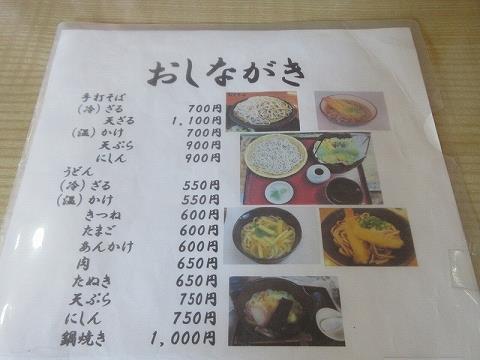 おしながき
手打そば
(冷)ざる 700円
天ざる 1,100円
(温)かけ 700円
天ぷら 900円
にしん 900円
うどん
(冷)ざる 550円
(温)かけ 550円
きつね 600円
たまご 600円
あんかけ 600円
肉 650円
たぬき 650円
天ぷら 750円
にしん 750円
鍋焼き 1,000円